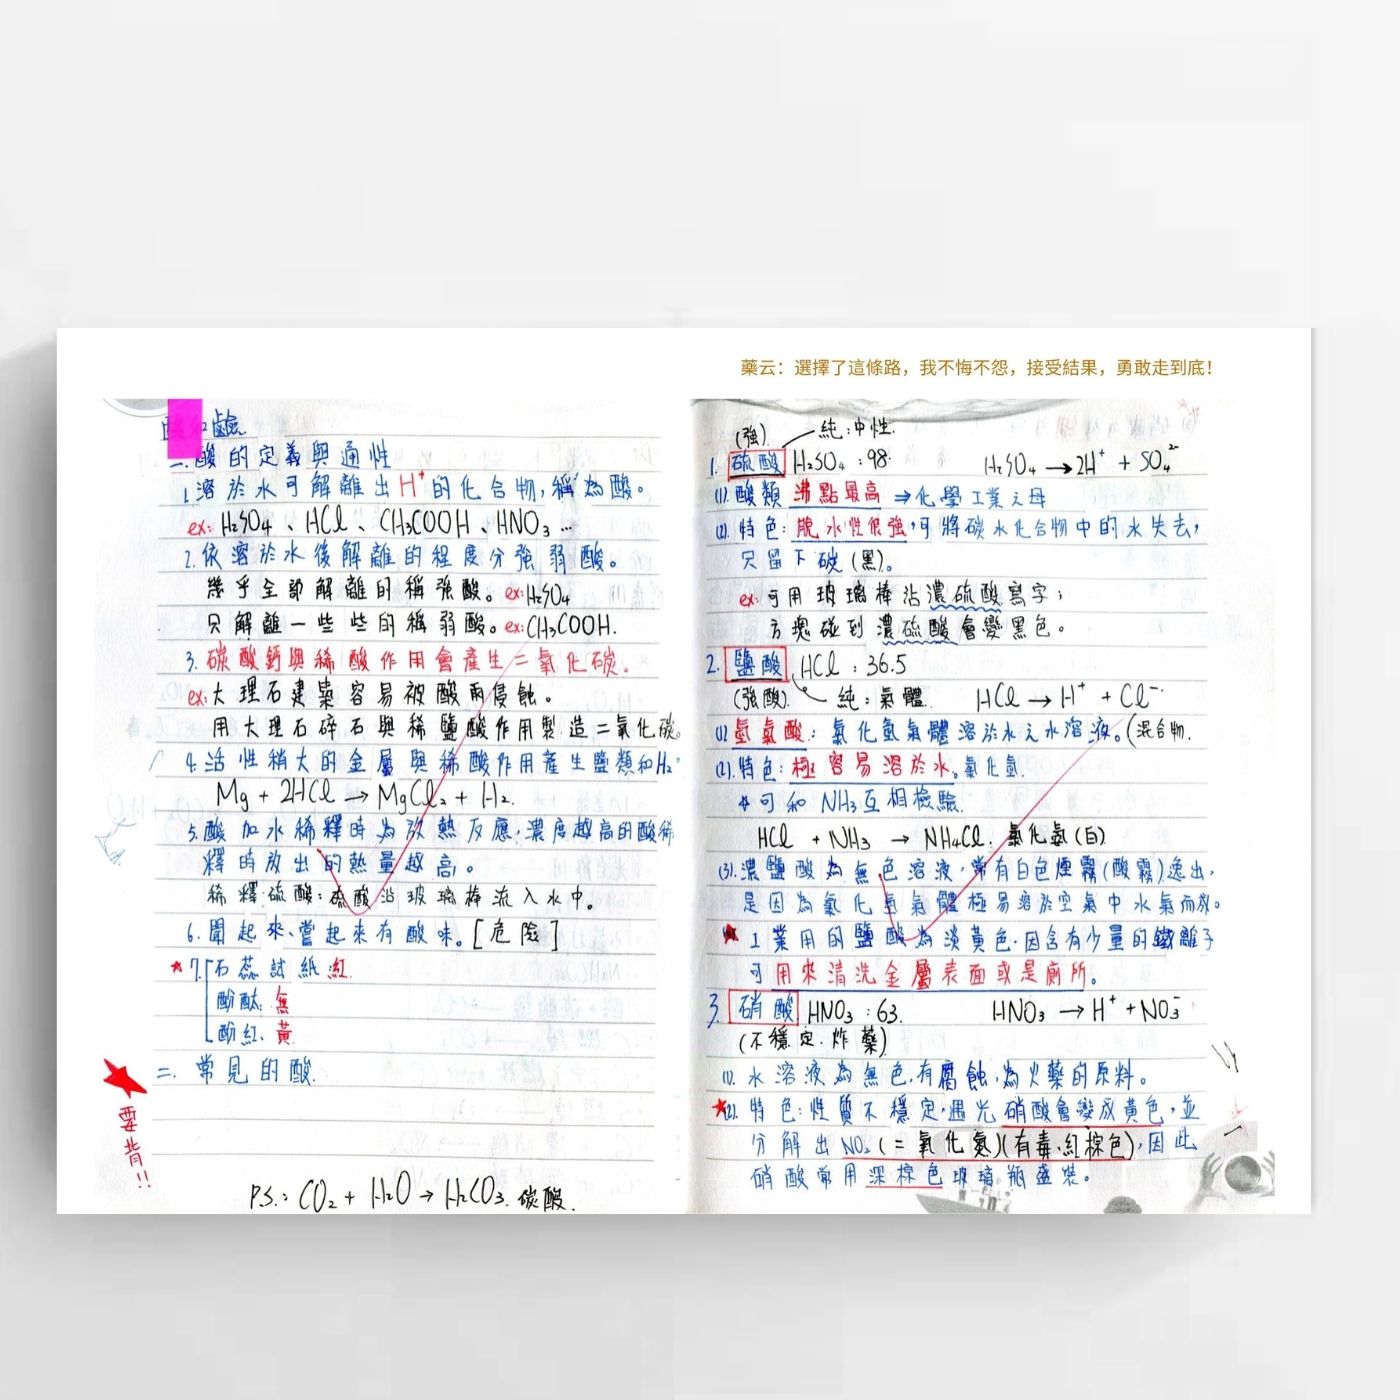 藥云：選擇了這條路，我不悔不怨，接受結果，勇敢走到底！
酸和鹼
一.酸的定義與通性
1.溶於水可解離出H⁺的化合物，稱為酸。
ex: H₂SO₄、HCl、CH₃COOH、HNO₃ …
2.依溶於水後解離的程度分強弱酸。
幾乎全部解離的稱強酸。ex: H₂SO₄
只解離一些些的稱弱酸。ex: CH₃COOH.
3.碳酸鈣與稀酸作用會產生二氧化碳。
ex:大理石建築容易被酸雨侵蝕。
用大理石碎石與稀鹽酸作用製造二氧化碳。
4.活性稍大的金屬與稀酸作用產生鹽類和H₂。
Mg + 2HCl → MgCl₂ + H₂.
5.酸加水稀釋時為放熱反應，濃度越高的酸稀
釋時放出的熱量越高。
稀釋硫酸：硫酸沿玻璃棒流入水中。
6.聞起來、嘗起來有酸味。[危險]
7.石蕊試紙.紅.
酚酞.無
酚紅.黃
二.常見的酸.
要背!!
P.S.: CO₂ + H₂O → H₂CO₃. 碳酸.
(強). 純:中性.
1.硫酸 H₂SO₄ : 98. H₂SO₄ → 2H⁺ + SO₄²⁻
(1).酸類沸點最高 ⇒化學工業之母
(2).特色:脫水性很強，可將碳水化合物中的水失去，
只留下碳(黑)。
ex:可用玻璃棒沾濃硫酸寫字；
方塊碰到濃硫酸會變黑色。
2.鹽酸 HCl : 36.5
(強酸). 純:氣體. HCl → H⁺ + Cl⁻.
(1)氫氯酸: 氯化氫氣體溶於水之水溶液。(混合物.
(2).特色:極容易溶於水。氯化氫.
可和NH₃互相檢驗.
HCl + NH₃ → NH₄Cl. 氯化氨(白)
(3).濃鹽酸為無色溶液，常有白色煙霧(酸霧)逸出，
是因為氯化氫氣體極易溶於空氣中水氣而成。
工業用的鹽酸為淡黃色.因含有少量的鐵離子
可用來清洗金屬表面或是廁所。
3.硝酸 HNO₃ : 63. HNO₃ → H⁺ + NO₃⁻
(不穩定.炸藥)
(1).水溶液為無色，有腐蝕，為火藥的原料。
(2).特色:性質不穩定，遇光硝酸會變成黃色，並
分解出NO₂(二氧化氮)(有毒.紅棕色)，因此
硝酸常用深棕色玻璃瓶盛裝。